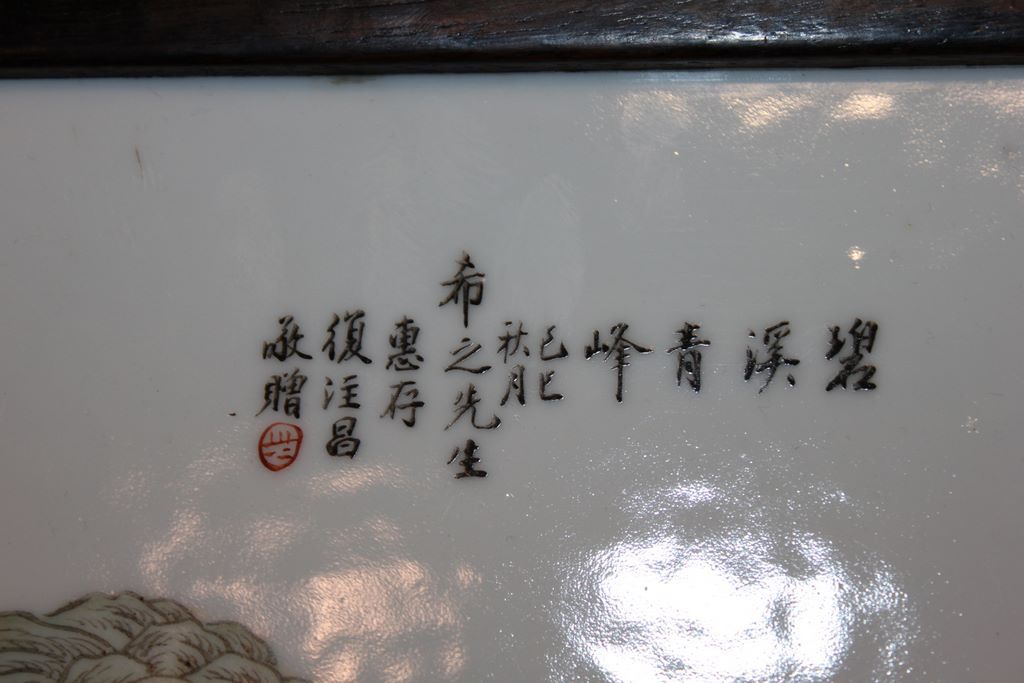 碧溪青峰
己巳
秋月
希之先生
惠存
復注昌
敬贈